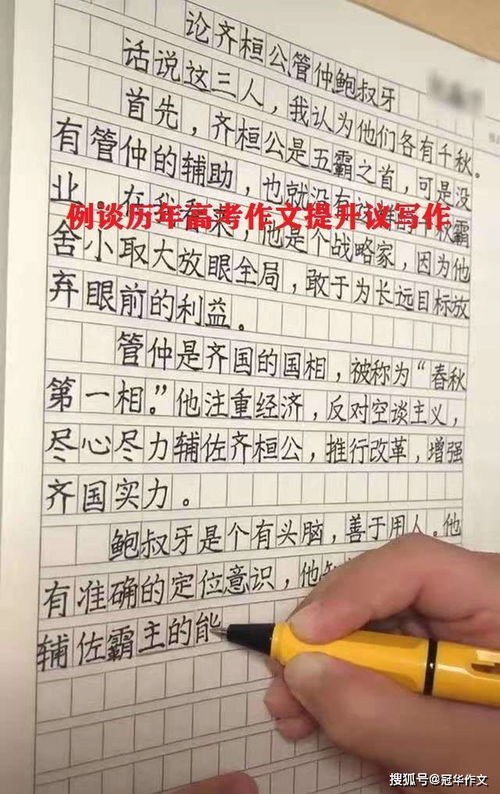 论齐桓公管仲鲍叔牙
话说这三人，我认为他们各有千秋。
首先，齐桓公是五霸之首，可是没
有管仲的辅助，也就没有
业。在我看来，他是个战略家，因为他
例谈历年高考作文提升议写作
舍小取大放眼全局，敢于为长远目标放
弃眼前的利益。
管仲是齐国的国相，被称为“春秋
第一相。”他注重经济，反对空谈主义，
尽心尽力辅佐齐桓公，推行改革，增强
齐国实力。
鲍叔牙是个有头脑，善于用人。他
有准确的定位意识，他知
辅佐霸主的能
搜狐号@冠华作文